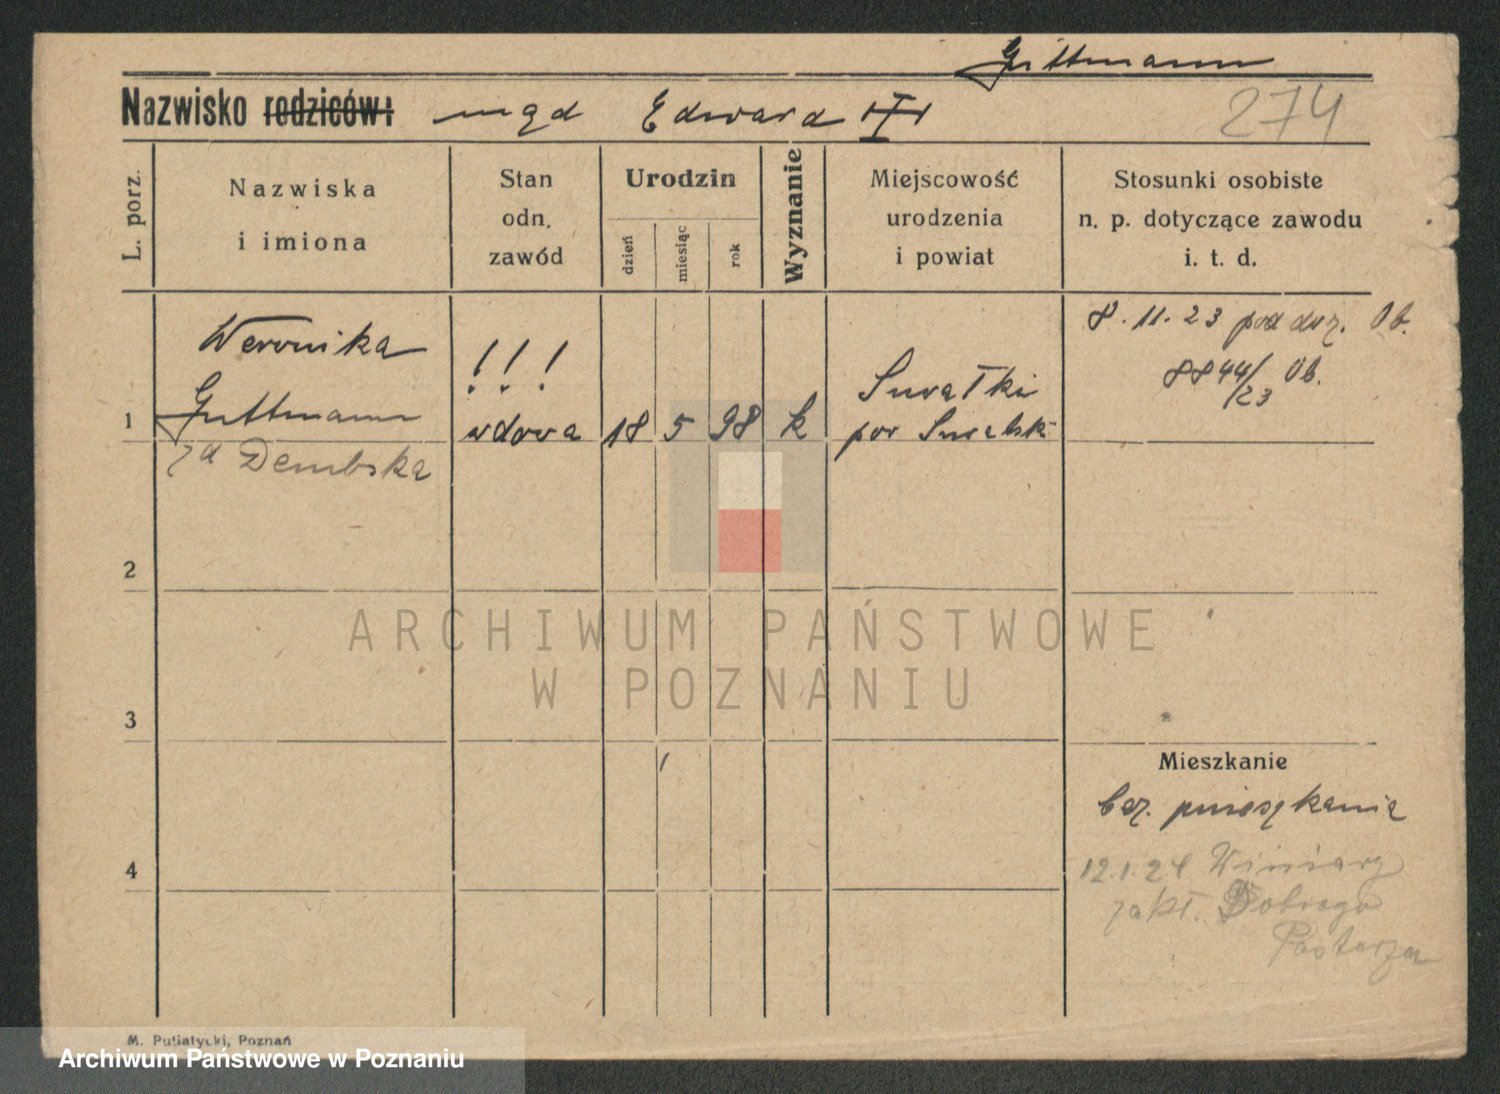 Guttmann
Nazwisko rodziców: mąd Edward
274
L. porz.
Nazwiska
i imiona
Stan
odn.
zawód
Urodzin
dzień
miesiąc
rok
Wyznanie
Miejscowość
urodzenia
i powiat
Stosunki osobiste
n. p. dotyczące zawodu
i. t. d.
1
Weronika
Guttmann
zd Dembska
! ! !
wdowa
18
5
98
k
Suwałki
pow Suwalski
8.11.23 pod doz. Ob.
8844/23 Ob.
2
3
4
Mieszkanie
bez mieszkania
12.1.24 Winiary
zakł. Dobrego
Pasterza
M. Putiatycki, Poznań
ARCHIWUM PAŃSTWOWE
W POZNANIU
Archiwum Państwowe w Poznaniu